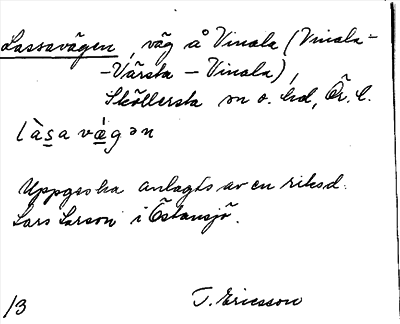 Lassavägen, väg å Vinala (Vinala-
-Värsta - Vinala),
Sköllersta sn o. hd, Ör. l.
làs̲a vǽ̲gən
Uppges ha anlagts av en riksd.
Lars Larson i Östansjö.
13 T. Ericsson